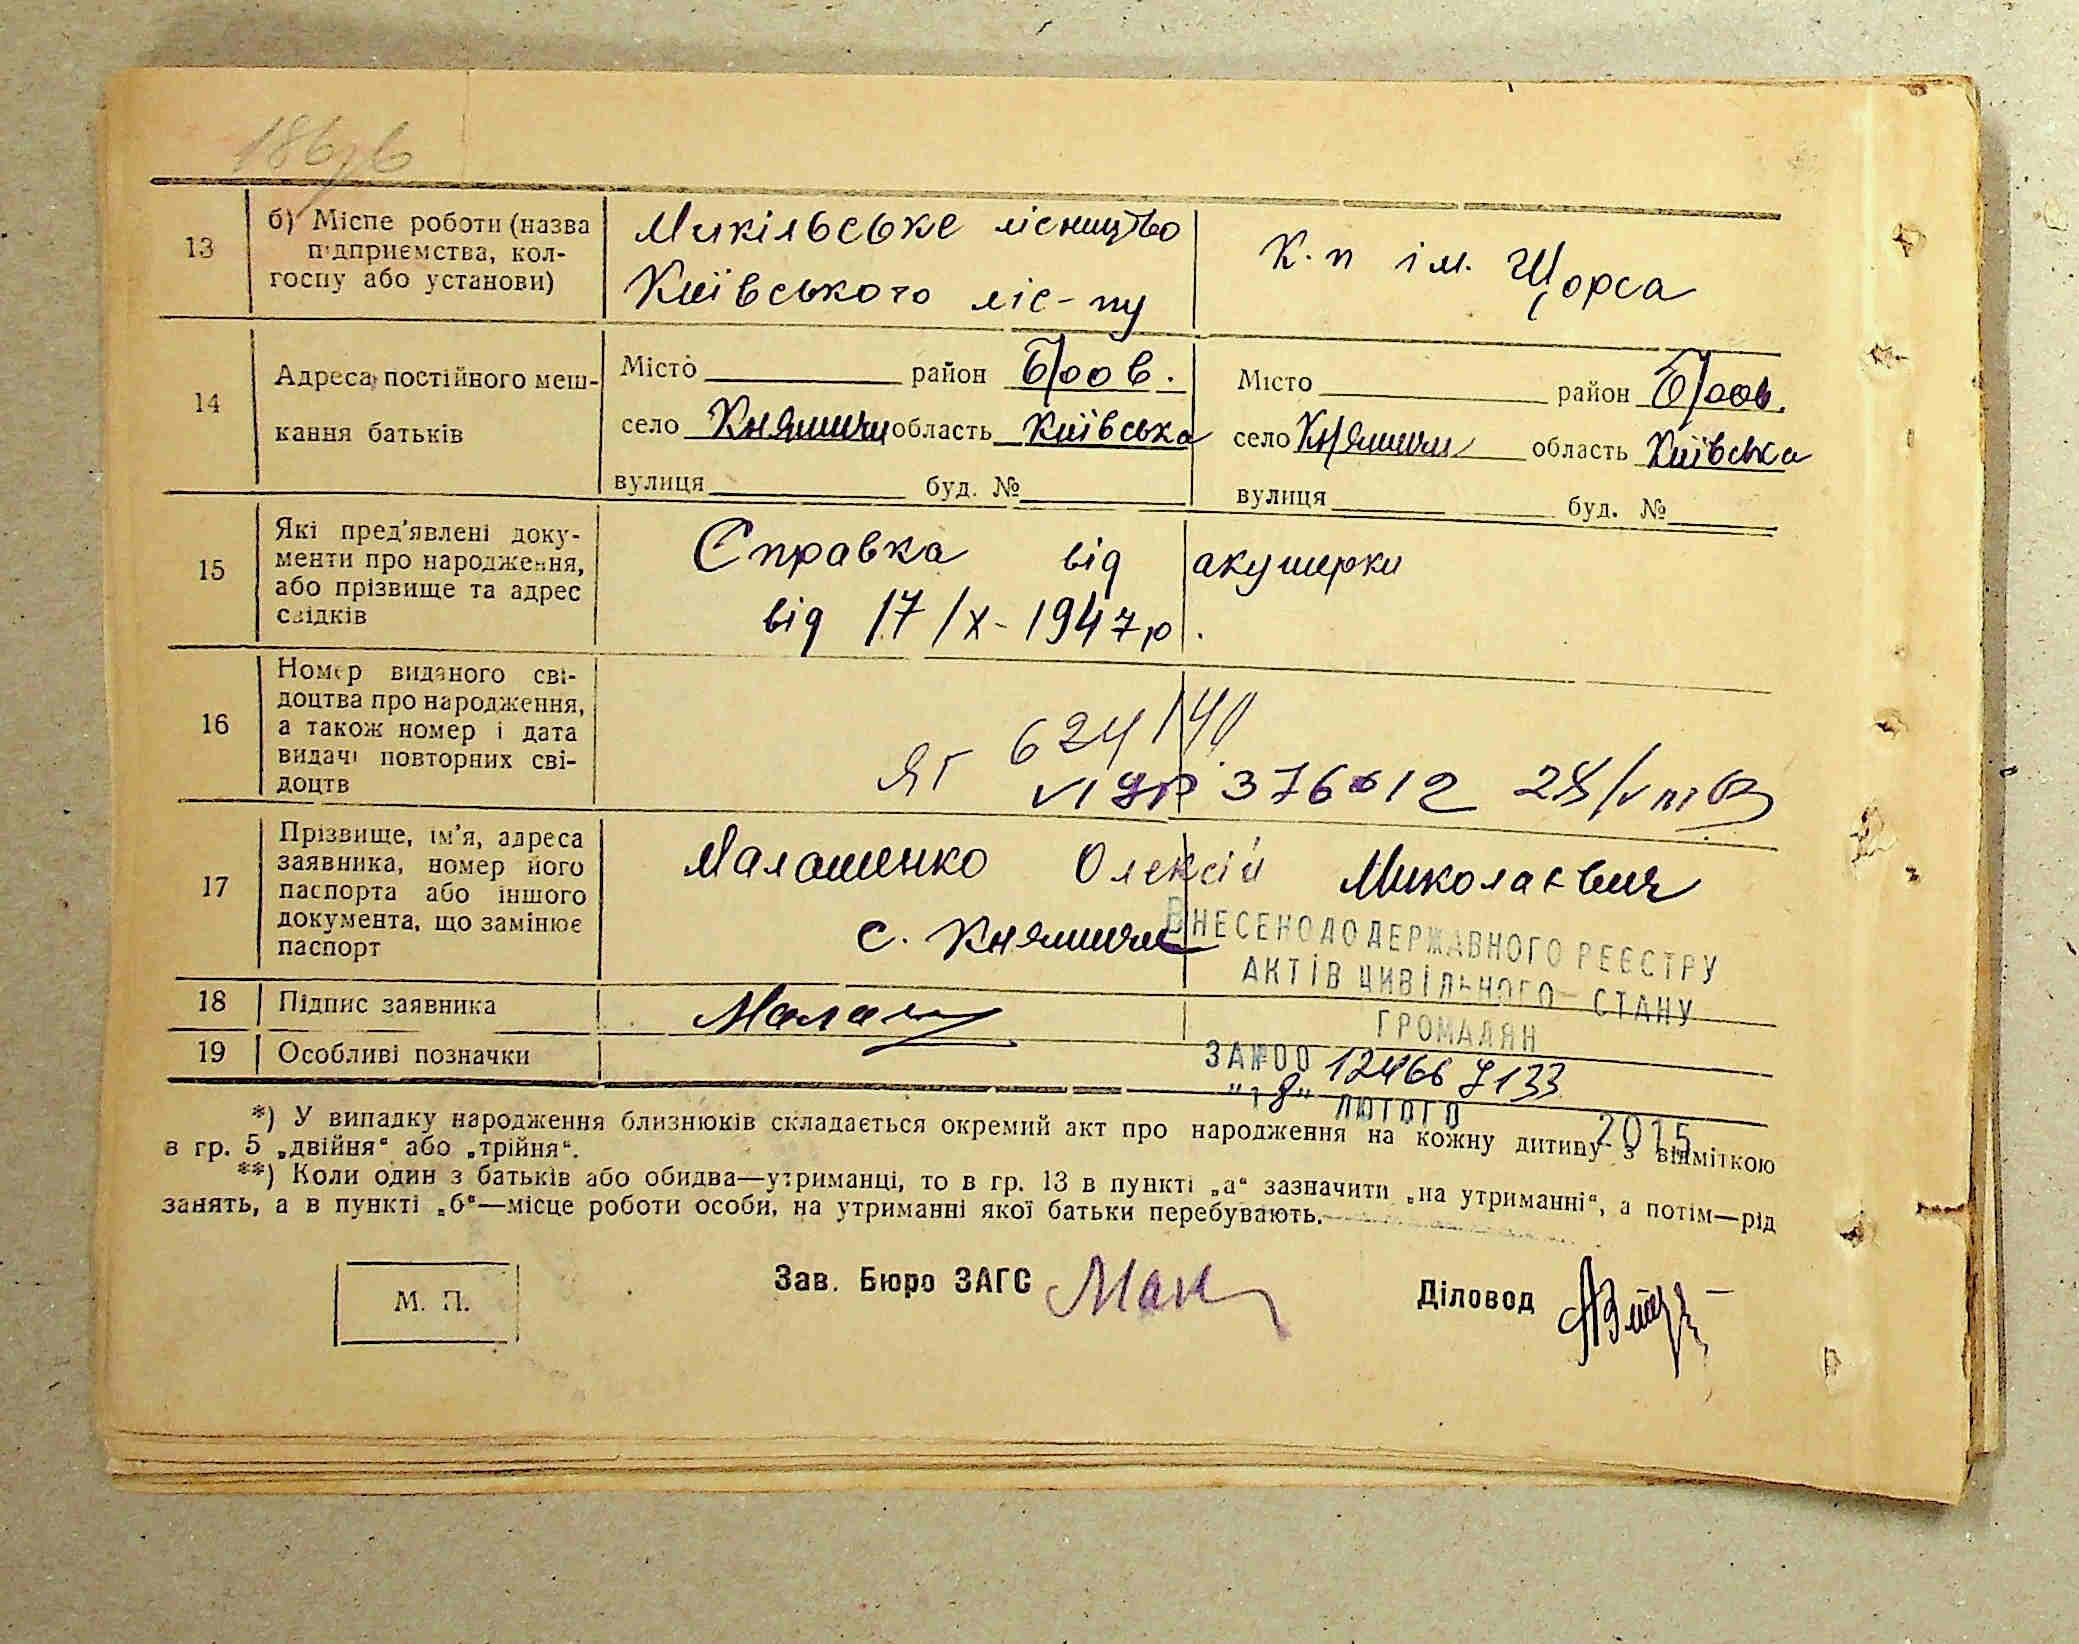 186/б
13
б) Місце роботи (назва
підприємства, кол-
госпу або установи)
Микільське лісництво
Київського ліс-пу
К.п ім. Щорса
14
Адреса постійного меш-
кання батьків
Місто район Бров.
село Княжичи область Київська
вулиця буд. №
Місто район Бров.
село Княжичи область Київська
вулиця буд. №
15
Які пред'явлені доку-
менти про народження,
або прізвище та адрес
свідків
Справка від акушерки
від 17/IX-1947р.
16
Номер виданого сві-
доцтва про народження,
а також номер і дата
видачі повторних сві-
доцтв
ЯГ 624140
376012
17
Прізвище, ім'я, адреса
заявника, номер його
паспорта або іншого
документа, що замінює
паспорт
Малашенко Олексій Миколаєвич
с. Княжичи
ВНЕСЕНО ДО ДЕРЖАВНОГО РЕЄСТРУ
АКТІВ ЦИВІЛЬНОГО СТАНУ
ГРОМАДЯН
18
Підпис заявника
19
Особливі позначки
ЗА №00 12466 7133
"18" ЛЮТОГО 2015
*) У випадку народження близнюків складається окремий акт про народження на кожну дитину з відміткою
в гр. 5 „двійня“ або „трійня“.
**) Коли один з батьків або обидва—утриманці, то в гр. 13 в пункті „а“ зазначити „на утриманні“, а потім—рід
занять, а в пункті „б“—місце роботи особи, на утриманні якої батьки перебувають.
М. П.
Зав. Бюро ЗАГС
Діловод